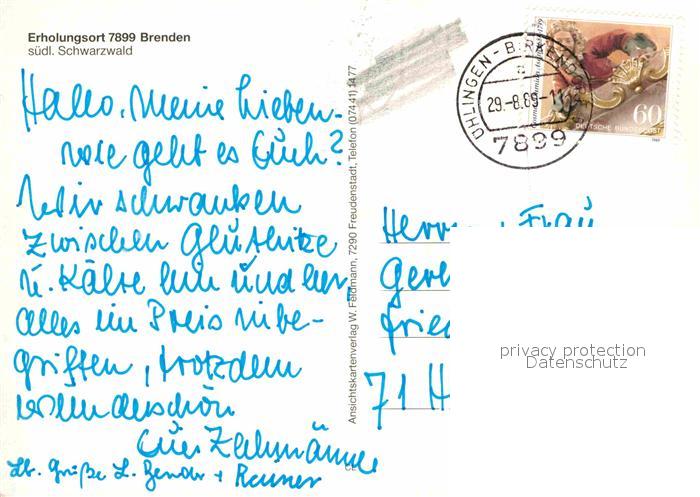 Erholungsort 7899 Brenden
südl. Schwarzwald
Hallo, meine Lieben -
wie geht es Euch?
Wir schwanken
zwischen Gluthitze
u. Kälte hin und her,
alles im Preis inbe-
griffen, trotzdem
wunderschön
Eure
Lb. Grüße
Ansichtskartenverlag W. Feldmann, 7290 Freudenstadt, Telefon (07441)
ÜHLINGEN-BIRKENDORF
29.-8.89-
7899
60
DEUTSCHE BUNDESPOST
Herrn Frau
Ger
Frie
71 H
privacy protection
Datenschutz